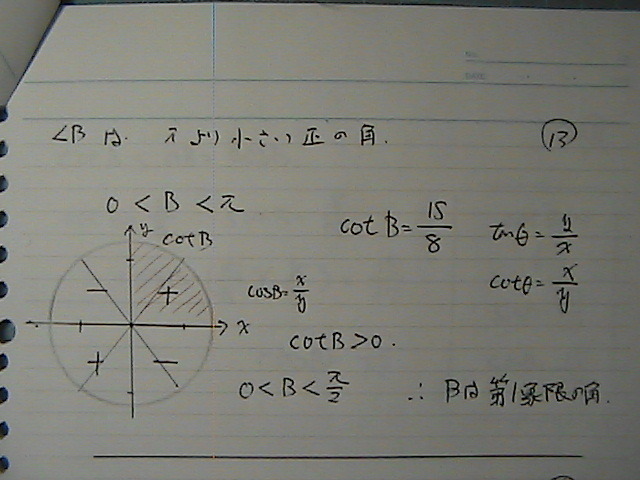 NO.
DATE
∠Bは、πより小さい正の角. ⑬
0 < B < π
y
cot B
cot B = 15/8
tanθ = y/x
− +
cosB = x/y
cotθ = x/y
x
cotB > 0.
+ −
0 < B < π/2 ∴ Bは第1象限の角.